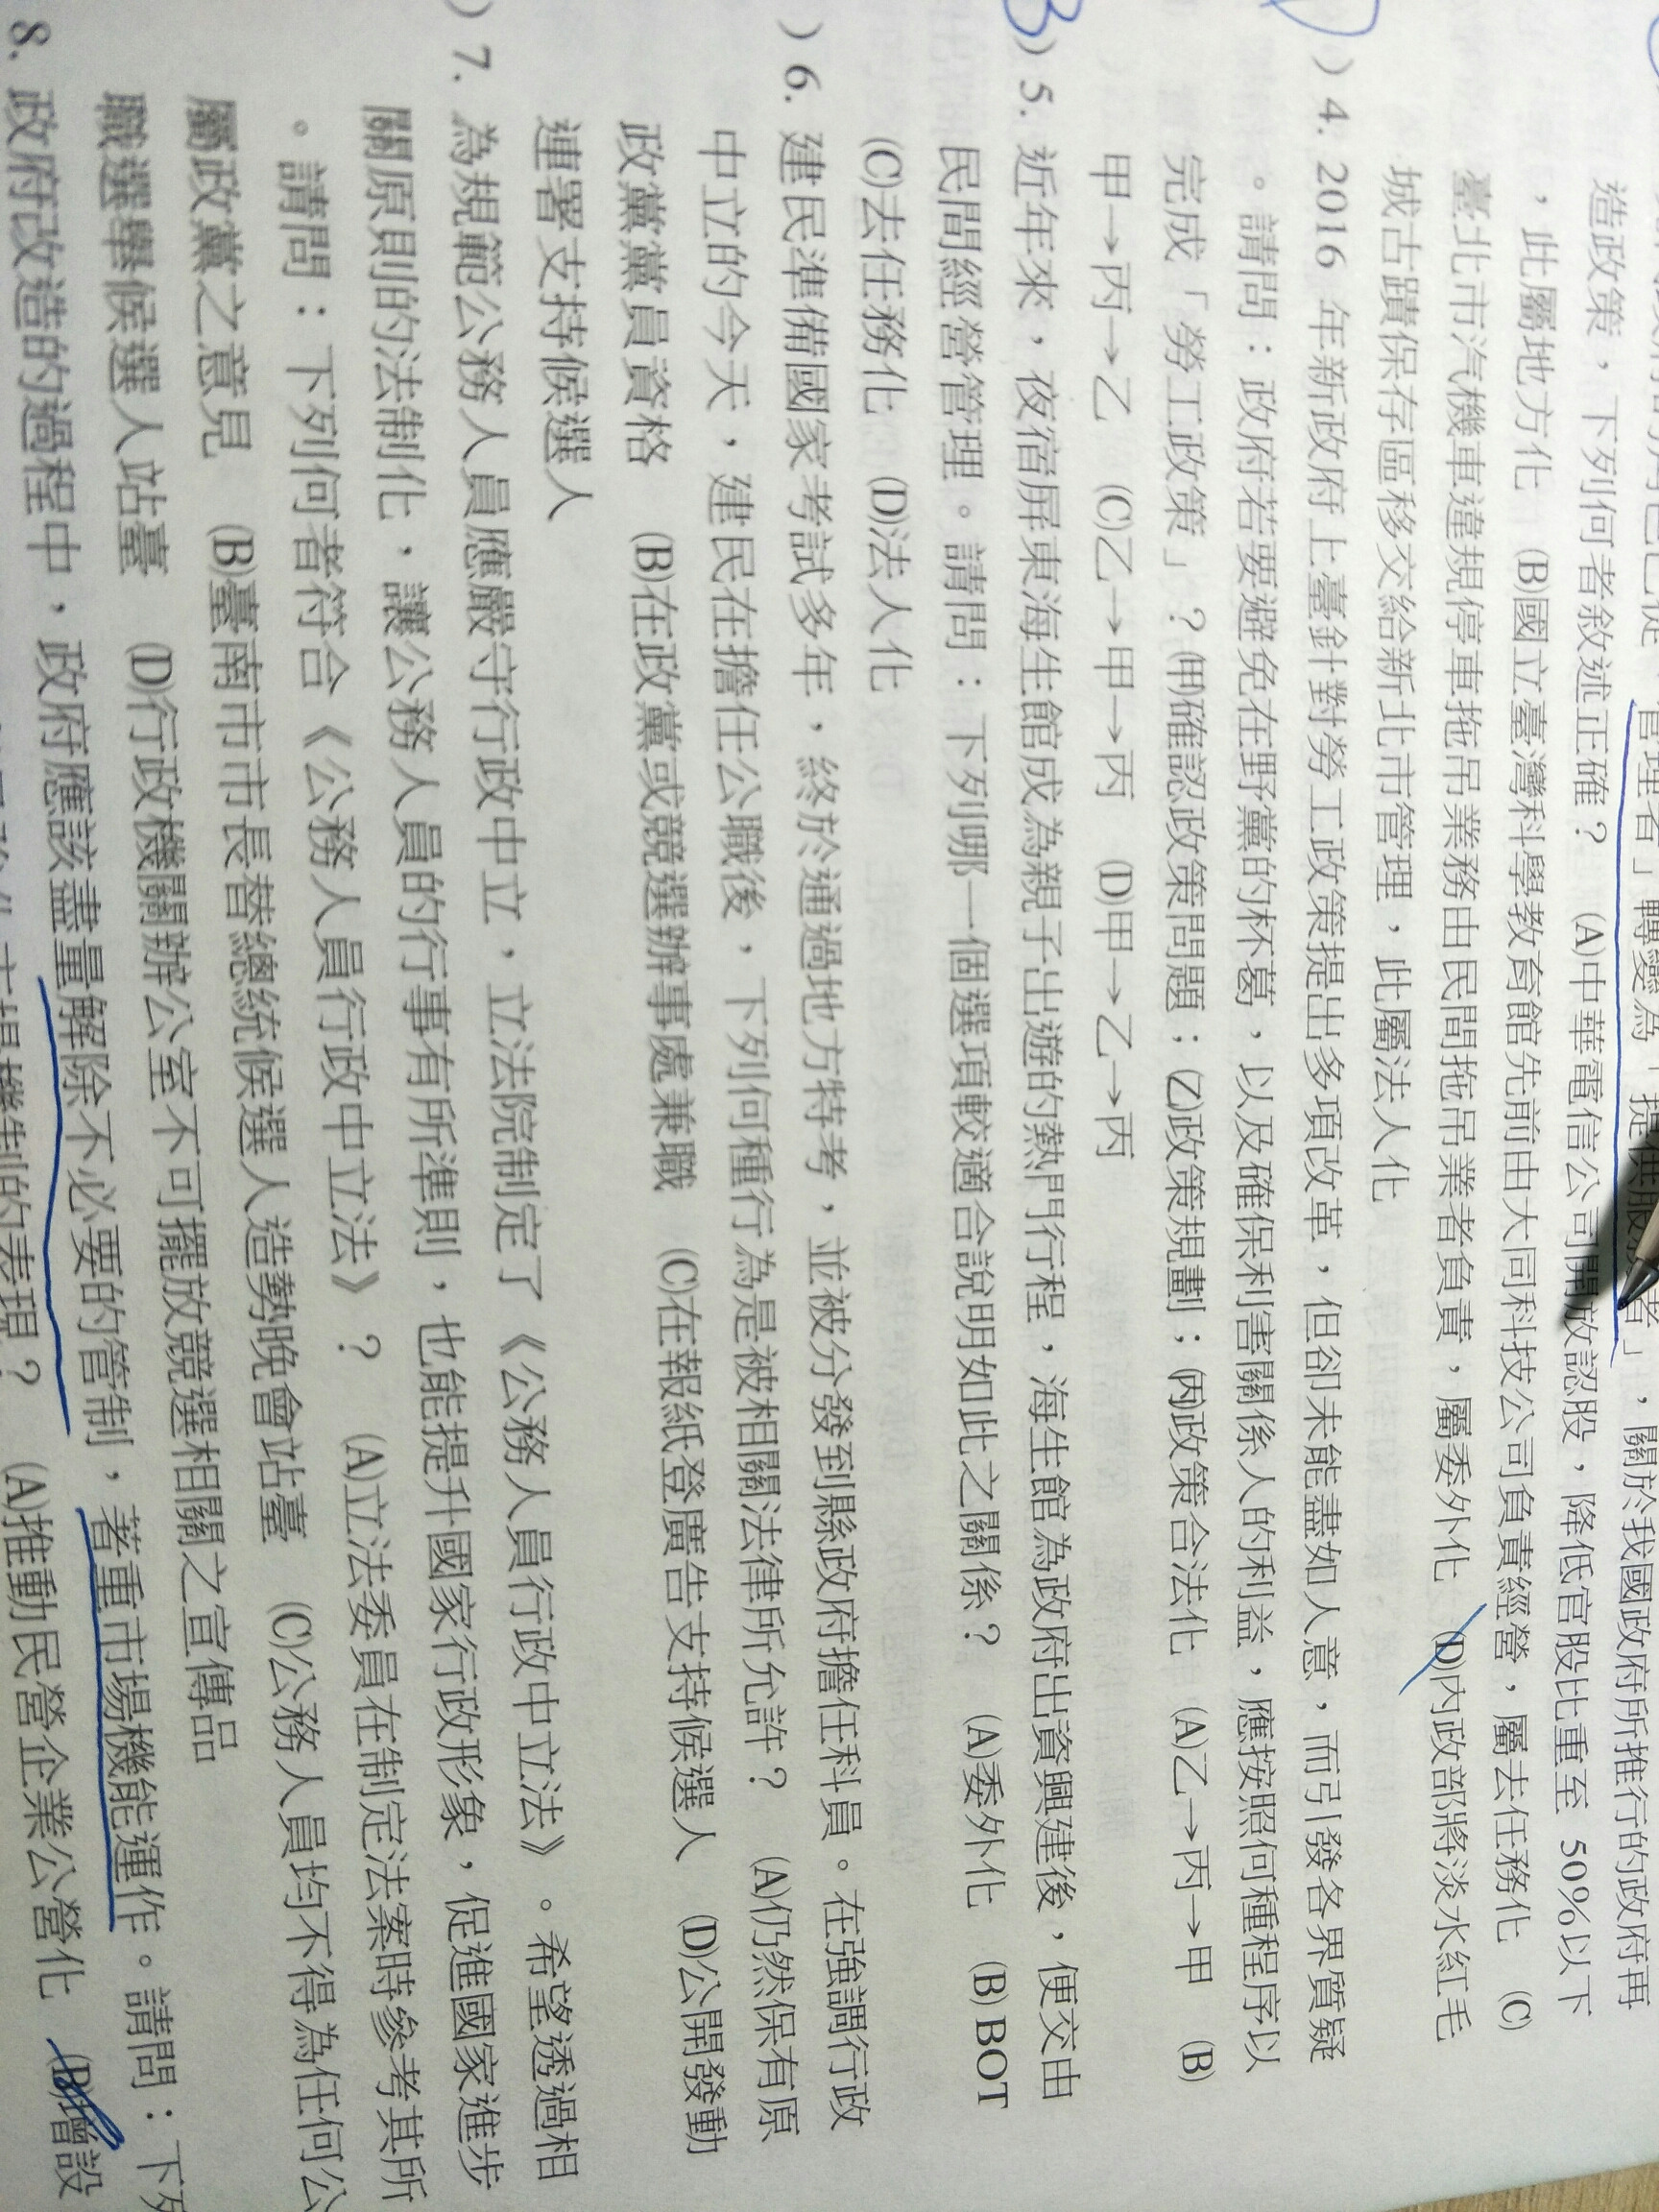 造政策，下列何者敘述正確？ (A)中華電信公司開放認股，降低官股比重至 50%以下
，此屬地方化 (B)國立臺灣科學教育館先前由大同科技公司負責經營，屬去任務化 (C)
臺北市汽機車違規停車拖吊業務由民間拖吊業者負責，屬委外化 (D)內政部將淡水紅毛
城古蹟保存區移交給新北市管理，此屬法人化
) 4. 2016 年新政府上臺針對勞工政策提出多項改革，但卻未能盡如人意，而引發各界質疑
。請問：政府若要避免在野黨的杯葛，以及確保利害關係人的利益，應按照何種程序以
完成「勞工政策」？(甲)確認政策問題；(乙)政策規劃；(丙)政策合法化 (A)乙→丙→甲 (B)
甲→丙→乙 (C)乙→甲→丙 (D)甲→乙→丙
) 5. 近年來，夜宿屏東海生館成為親子出遊的熱門行程，海生館為政府出資興建後，便交由
民間經營管理。請問：下列哪一個選項較適合說明如此之關係？ (A)委外化 (B) BOT
(C)去任務化 (D)法人化
) 6. 建民準備國家考試多年，終於通過地方特考，並被分發到縣政府擔任科員。在強調行政
中立的今天，建民在擔任公職後，下列何種行為是被相關法律所允許？ (A)仍然保有原
政黨黨員資格 (B)在政黨或競選辦事處兼職 (C)在報紙登廣告支持候選人 (D)公開發動
連署支持候選人
) 7. 為規範公務人員應嚴守行政中立，立法院制定了《公務人員行政中立法》。希望透過相
關原則的法制化，讓公務人員的行事有所準則，也能提升國家行政形象，促進國家進步
。請問：下列何者符合《公務人員行政中立法》？ (A)立法委員在制定法案時參考其所
屬政黨之意見 (B)臺南市市長替總統候選人造勢晚會站臺 (C)公務人員均不得為任何公
職選舉候選人站臺 (D)行政機關辦公室不可擺放競選相關之宣傳品
8. 政府改造的過程中，政府應該盡量解除不必要的管制，著重市場機能運作。請問：下列
表現？ (A)推動民營企業公營化 (B)增設